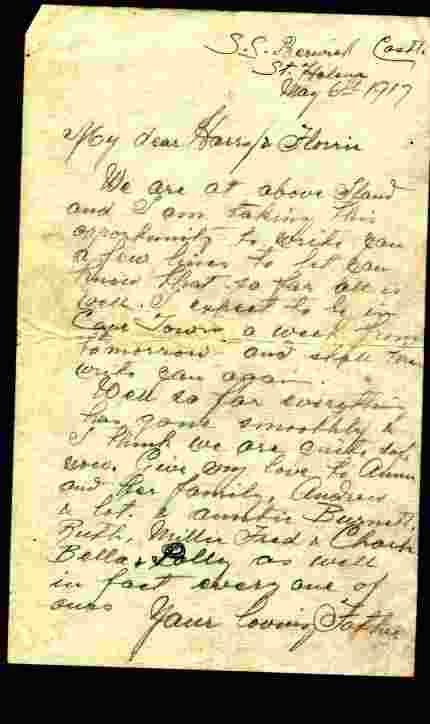 S.S. Berwick Castle
St. Helena
May 6th 1917
My dear Harry & Florrie
We are at above Iland
and I am taking this
opportunity to write you
a few lines to let you
know that so far all is
well. I expect to be in
Cape Town a week from
tomorrow and shall then
write you again.
Well so far everything
has gone smoothly &
I think we are quite safe
now. Give my love to Annie
and her family, Andrew
& let. & auntie Burnett,
Ruth, Millie Fred & Charlie
Bella & Polly as well
in fact every one of
ours
Your loving Father